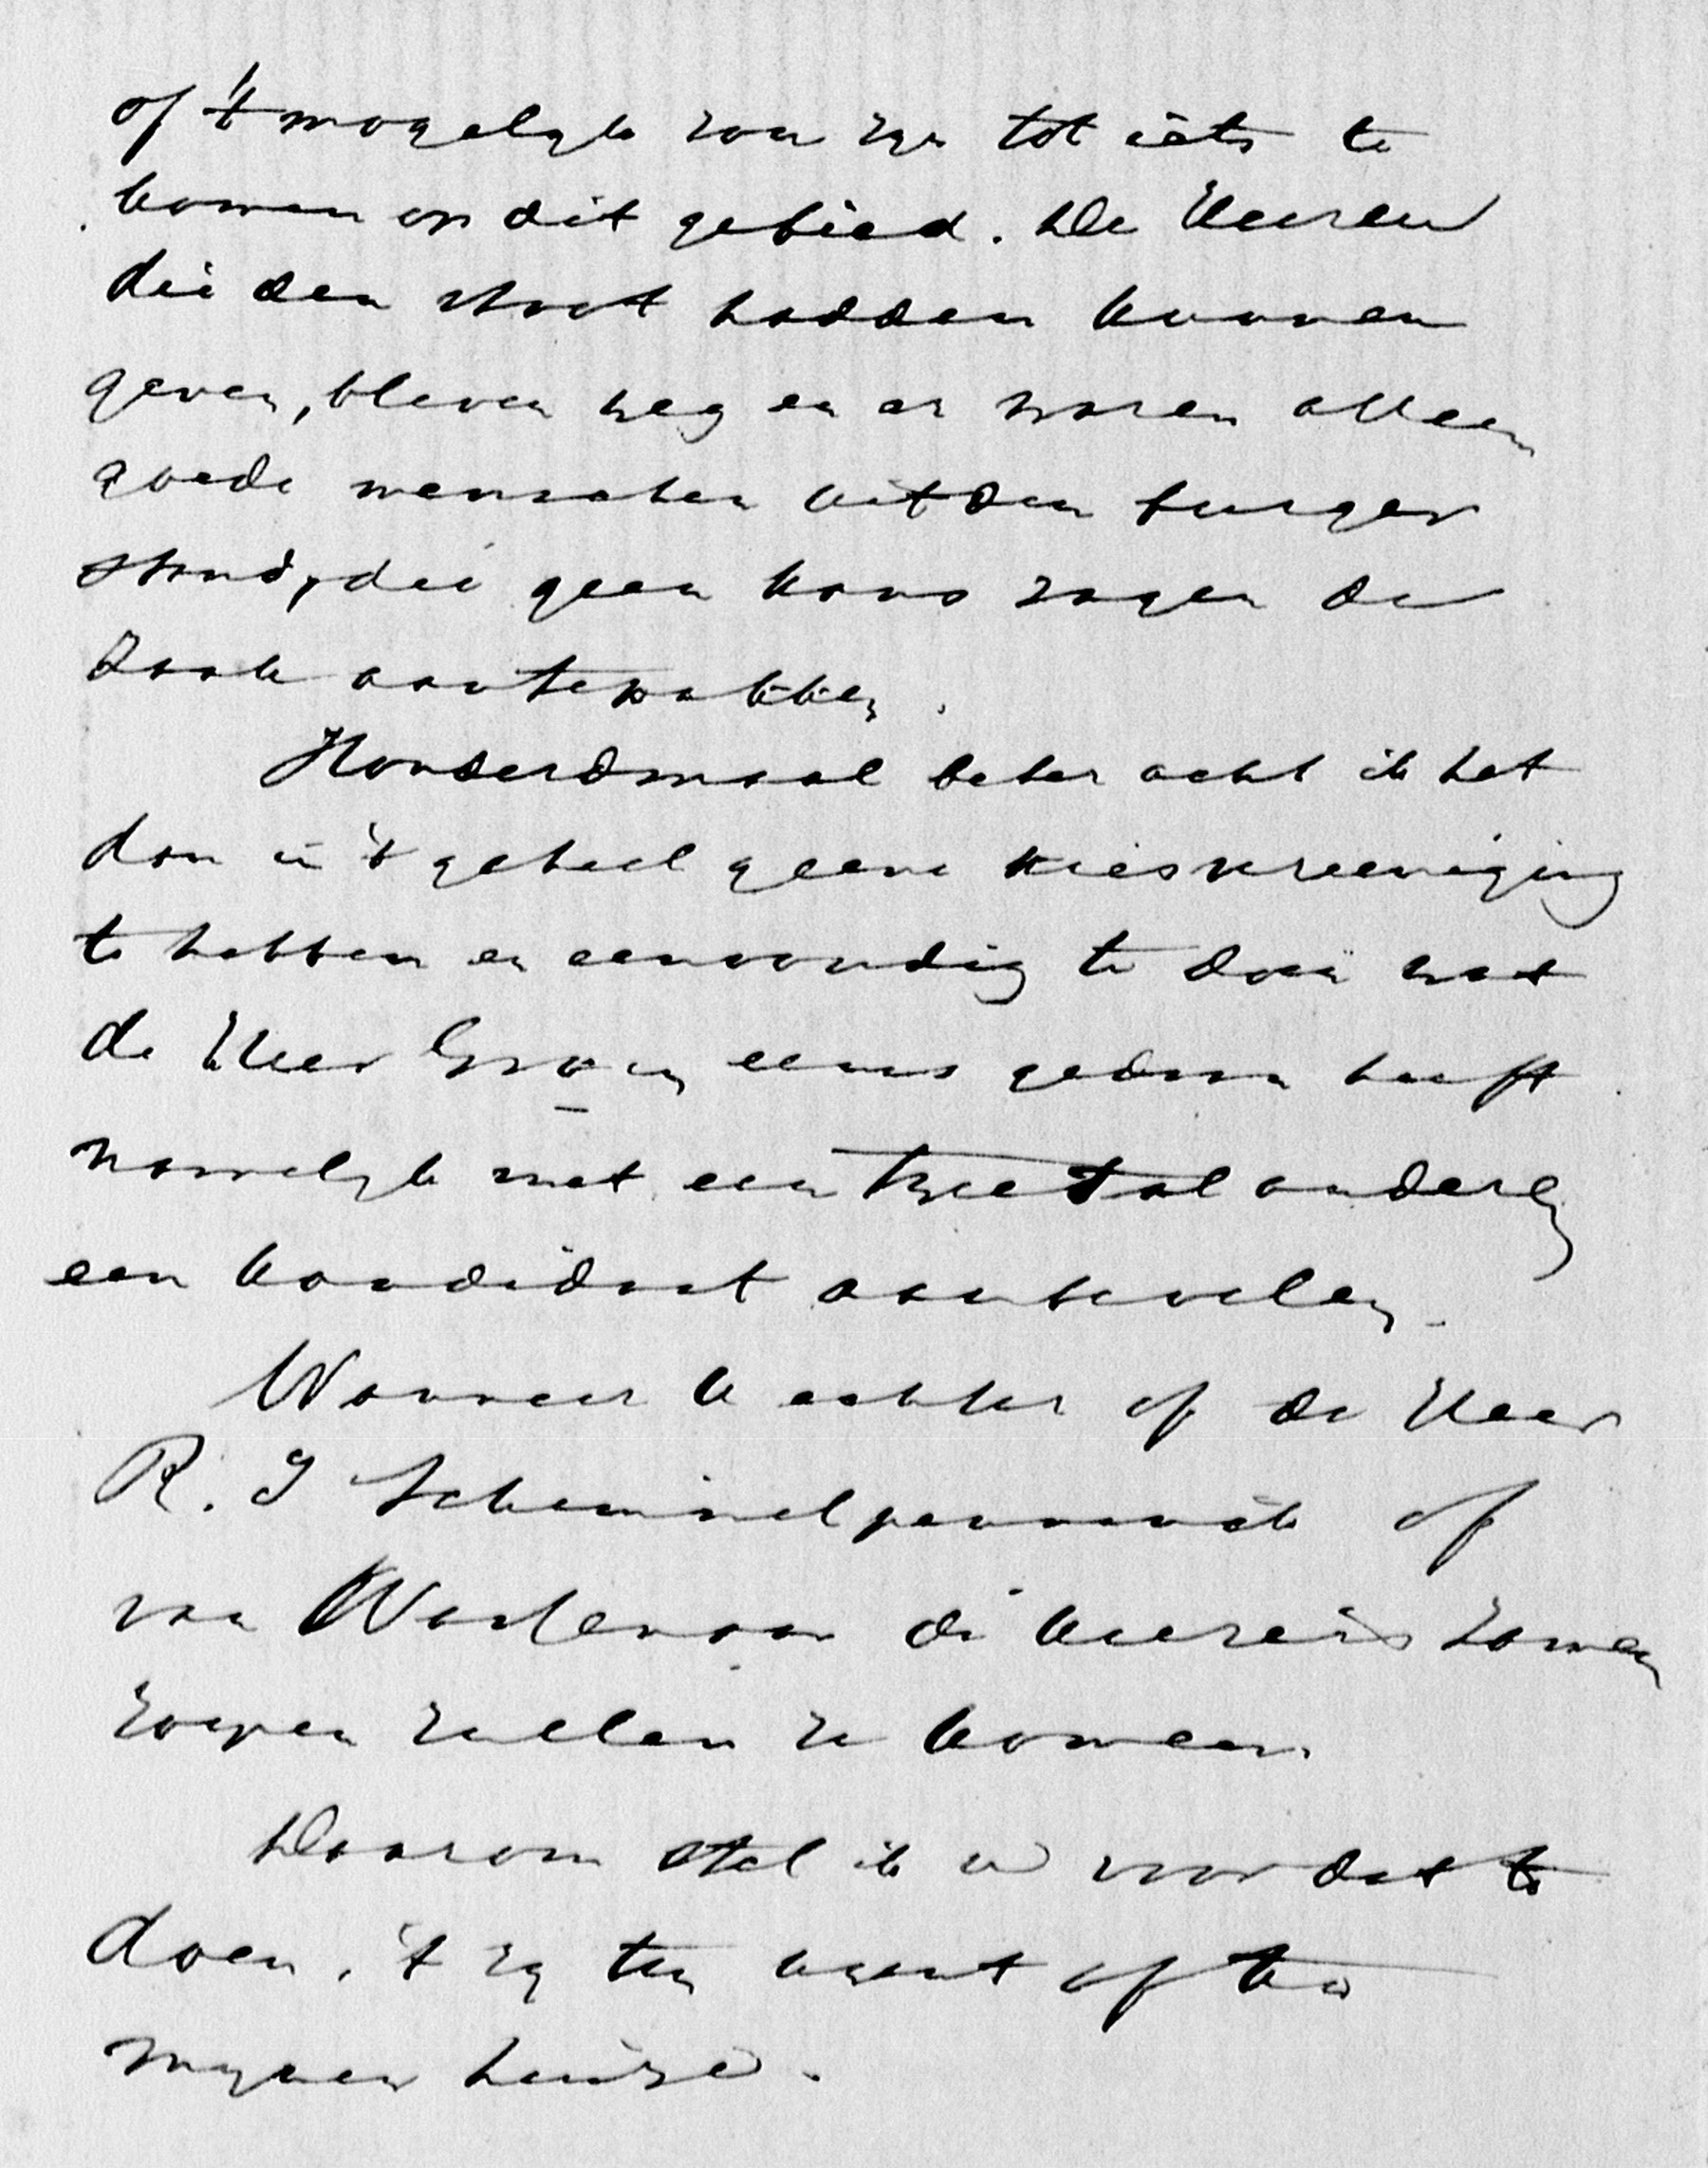 of 't mogelyk zou zyn tot iets te
komen op dit gebied. De Heeren
die den stoot hadden kunnen
geven, bleven weg en er waren alleen
goede menschen uit den burger
stand, die geen kans zagen de
zaak aantepakken.
Honderdmaal beter acht ik het
dan in 't geheel geene kiesvereeniging
te hebben en eenvoudig te doen wat
de Heer Groen eens gedaan heeft
namelyk met een tweetal anderen
een kandidaat aanbevelen.
Wanneer U echter of de Heer
R. J Schimmelpenninck of
van Wassenaar de kiezers samen
roepen zullen ze komen
Daarom stel ik U voor dat te
doen, 't zy ten uwent of ten
mynen huize.